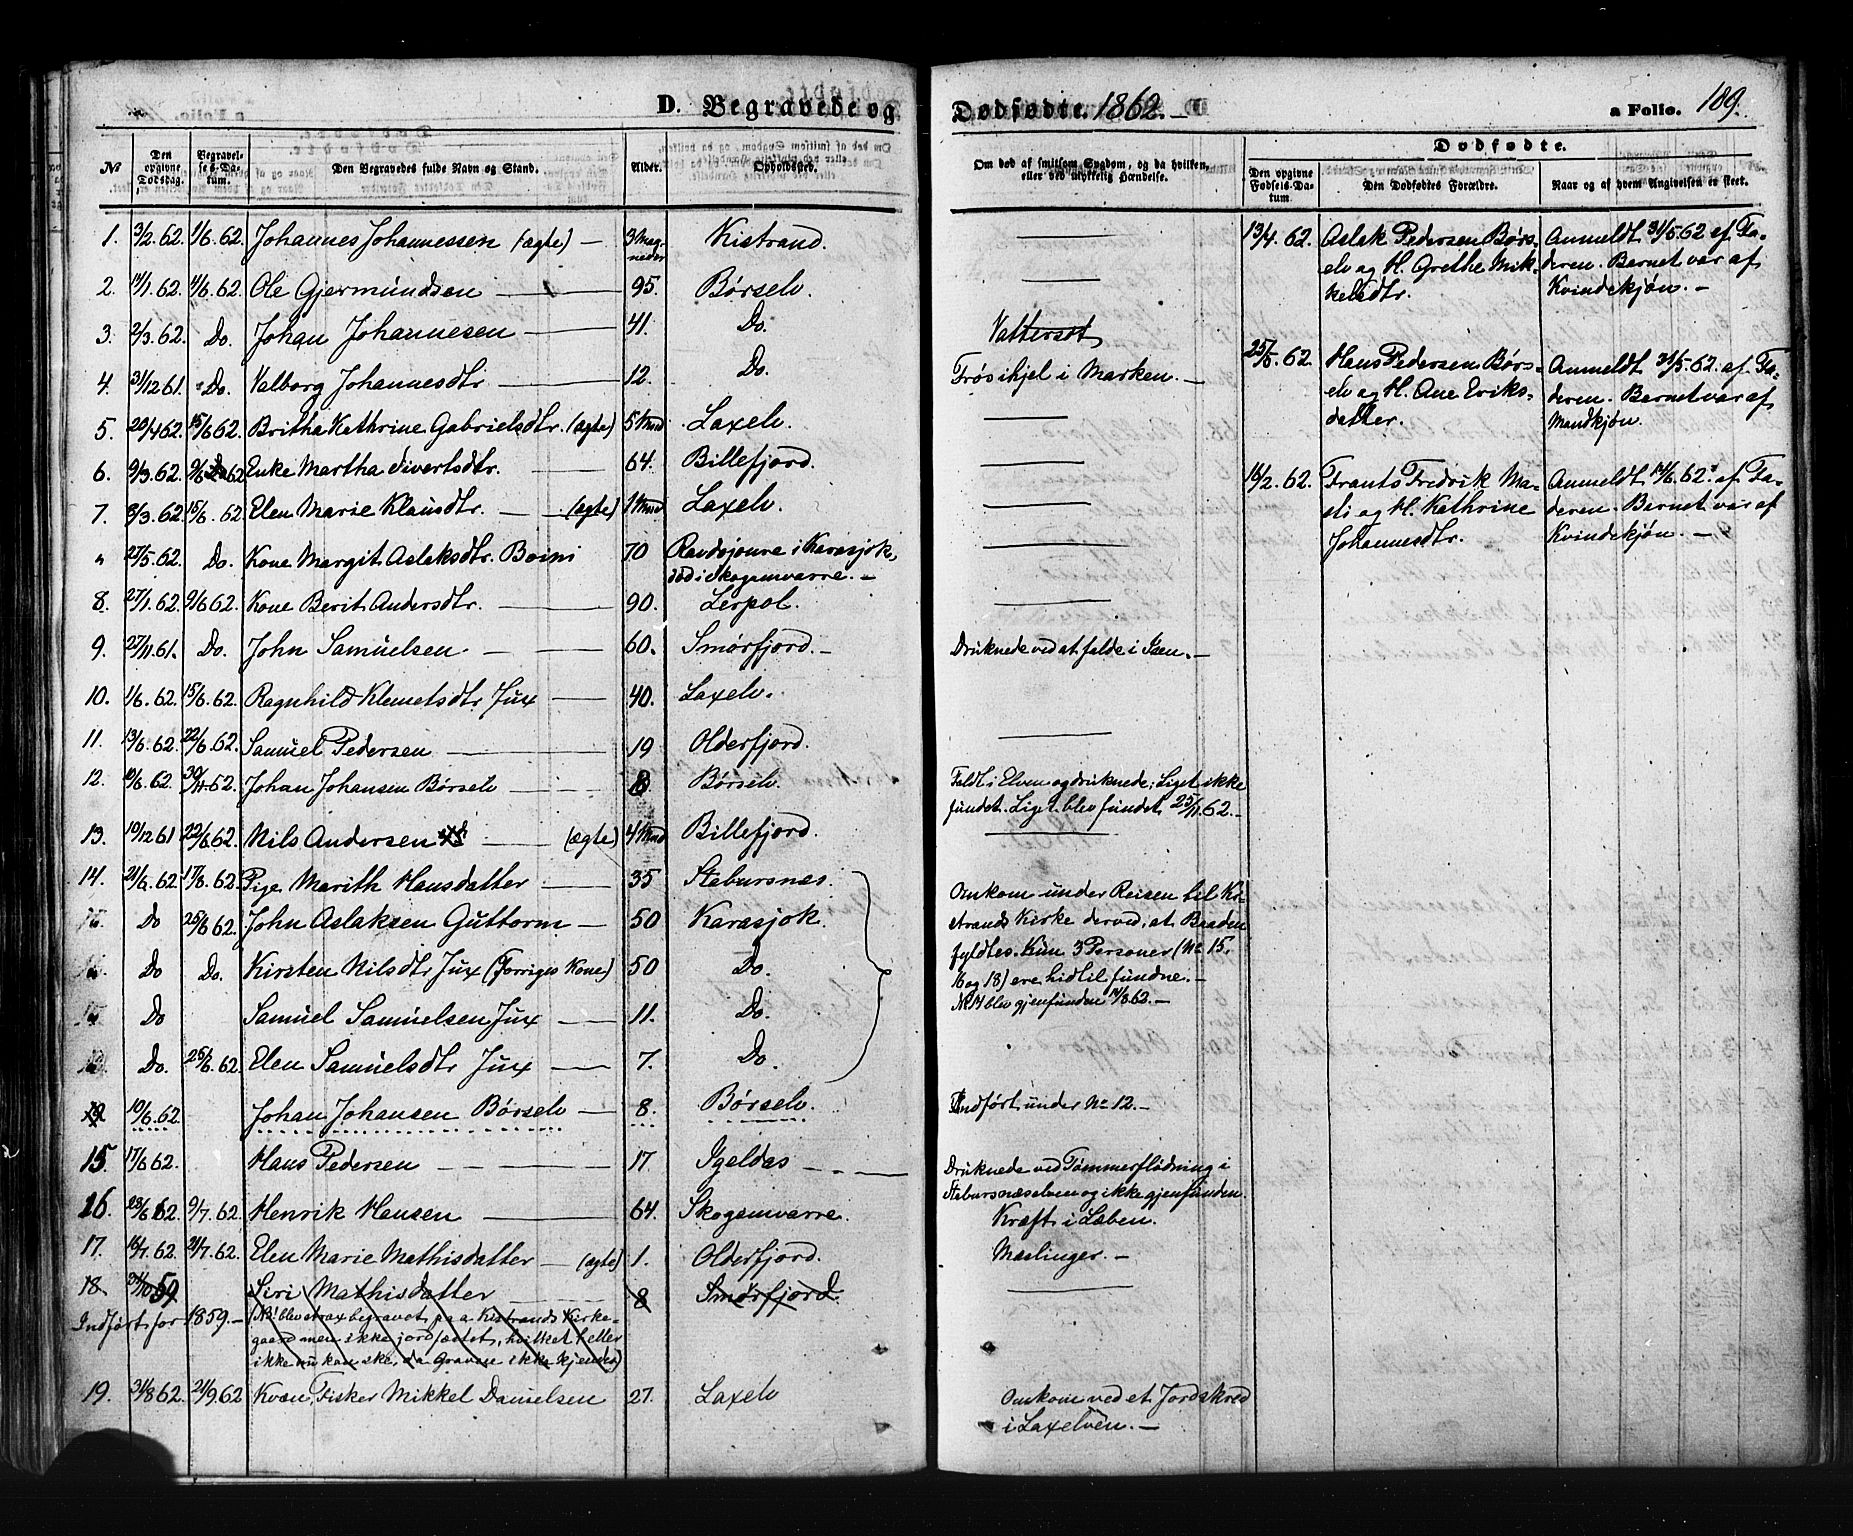 D. Begravede og Dødfødte. 1862. — a Folio. 189.
№ Den opgivne Dødsdag. Begravelses-Datum. Den Begravedes fulde Navn og Stand. Alder. Opholdssted. Om død af smitsom Sygdom, og da hvilken, eller ved ulykkelig Hændelse.
Dødfødte.
Den opgivne Fødsels-Datum. Den Dødfødtes Forældre. Naar og af hvem Angivelsen er skeet.
1. 3/2. 62. 1/6. 62. Johannes Johannessen (ægte) — 3 Maaneder Kistrand.
2. 11/1. 62. 1/6. 62. Ole Gjermundsen — 95. Børselv.
3. 2/3. 62. Do. Johan Johannesen — 41. Do. Vattersot
4. 31/12 61. Do. Valborg Johannesdtr — 12. Do. Frøs ihjel i Marken. —
5. 20/4 62. 15/6 62. Britha Kathrine Gabrielsdtr. (ægte) 5 Mnd Laxelv.
6. 9/3. 62. 9/6 62 Enke Martha Sivertsdtr. — 64. Billefjord.
7. 8/3. 62. 15/6. 62. Elen Marie Klausdtr. — (ægte) 1 Mnd Laxelv.
" 27/5. 62. Do. Kone Margit Aslaksdtr. Boini 70 Ravdojouve i Karasjok,
død i Skoganvarre. —
8. 27/1. 62. 9/6 62. Kone Berit Andersdtr. — 90. Lerpol.
9. 27/11. 61. Do. John Samuelsen — 60. Smørfjord. — Druknede ved at falde i Isen. —
10. 1/6. 62. 15/6. 62. Ragnhild Klemetsdtr Jux — 40. Laxelv.
11. 13/6. 62. 22/6. 62. Samuel Pedersen — 19 Olderfjord.
12. 10/6. 62. 30/11. 62. Johan Johansen Børselv 8 Børselv. Faldt i Elven og druknede; Liget ikke
fundet. Liget blev fundet 25/11 62. —
13. 19/12 61 22/6 62. Nils Andersen — (ægte) 4 Mnd Billefjord.
14. 21/6. 62 17/8. 62. Pige Marith Hansdatter — 35 Stabursnes.
Do 25/6 62. John Aslaksen Guttorm — 50 Karasjok.
Do Do. Kirsten Nilsdtr Jux (Forriges Kone) 50 Do.
Do Samuel Samuelsen Jux — 11. Do.
Do. 25/6. 62. Elen Samuelsdtr Jux — 7. Do.
Omkom under Reisen til Ki-
strands Kirke derved, at Baaden
fyldtes. Kun 3 Personer (Nr 15.
16 og 18) ere hidtil fundne. —
Nr. 14 blev gjenfunden 14/8 62. —
19 10/6. 62 Johan Johansen Børselv — 8. Børselv. Indført under Nr 12. —
15. 17/6 62. Hans Pedersen — 17. Igeldas — Druknede ved Tømmerflødning i
Stabursnæselven og ikke gjenfunden.
16. 23/6 62. 9/7. 62. Henrik Hansen — 64. Skoganvarre. Kræft i Læben.
17. 16/7. 62. 21/7. 62. Elen Marie Mathisdatter — (ægte) 1. Olderfjord. Meslinger. —
18. 59 Siri Mathisdatter — 8 Smørfjord.
Indført for 1859. — (NB! blev strax begravet paa Kistrands Kirke-
gaard men ikke jordfæstet, hvilket heller
ikke nu kan ske, da Graven ikke kjendes)
19. 31/8 62. 21/9. 62 Kvæn, Fisker Mikkel Danielsen 27. Laxelv Omkom ved et Jordskred
i Laxelven. —
13/4. 62. Aslak Pedersen Børs-
elv og H. Grethe Mik-
kelsdtr.
Anmeldt 31/5. 62 af Fa-
deren. Barnet var af
Kvindekjøn. —
25/5. 62. Hans Pedersen Børs-
elv og H. Ane Eriks-
datter.
Anmeldt 31/5. 62. af Fa-
deren. Barnet var af
Mandkjøn.
16/2. 62. Frants Fredrik Ma-
eli og H. Kathrine
Johannesdtr.
Anmeldt 14/6. 62. af Fa-
deren. Barnet var af
Kvindekjøn. —